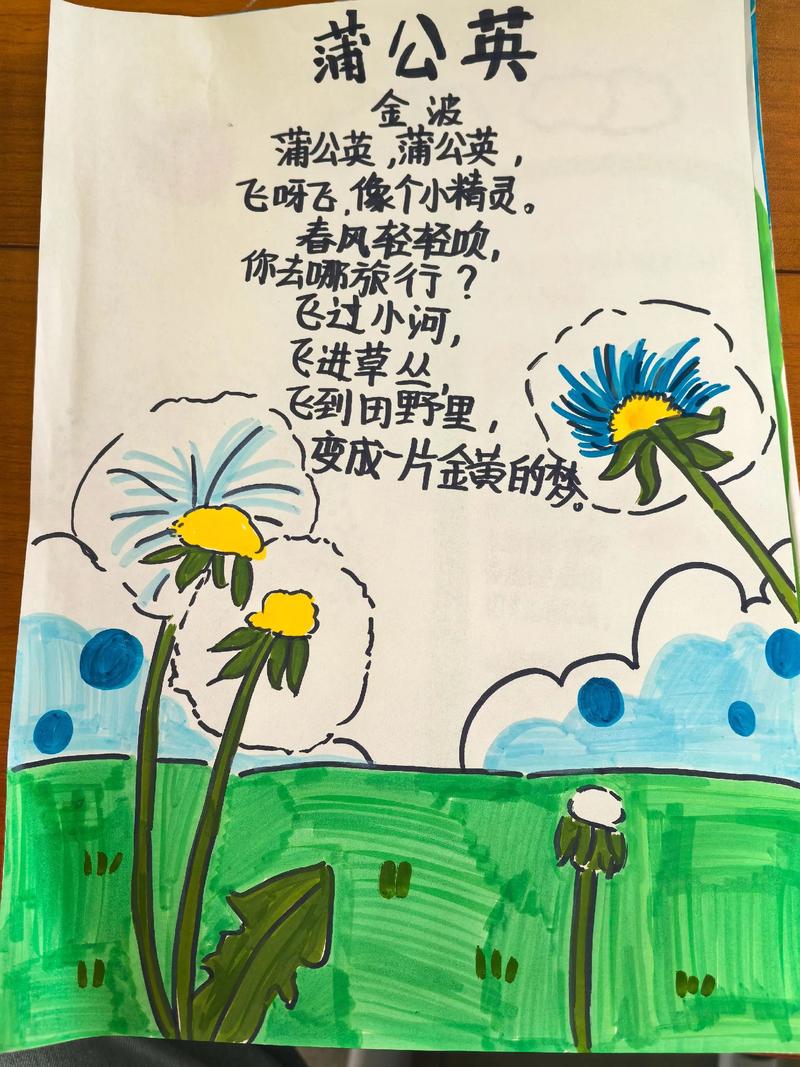 蒲公英
金波
蒲公英,蒲公英,
飞呀飞,像个小精灵。
春风轻轻吹,
你去哪旅行?
飞过小河,
飞进草丛,
飞到田野里,
变成一片金黄的梦。